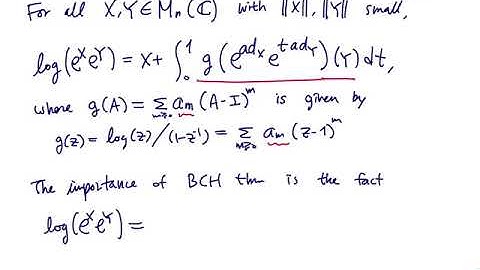 For all X,Y∈Mn(ℂ) with ‖X‖,‖Y‖ small,
log(e^X e^Y) = X + ∫_0^1 g(e^{ad_X} e^{t ad_Y})(Y) dt,
where g(A) = Σ_{m≥0} a_m (A-I)^m is given by
g(z) = log(z)/(1-z^{-1}) = Σ_{m≥0} a_m (z-1)^m
The importance of BCH thm is the fact
log(e^X e^Y) =